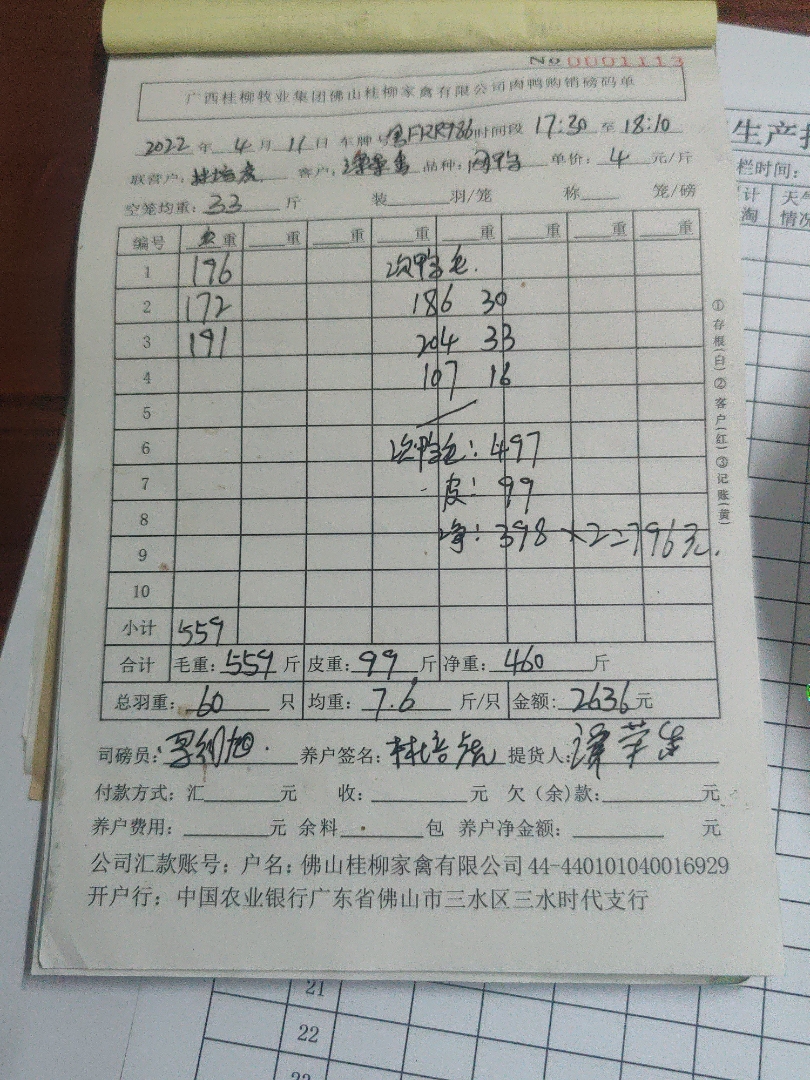 No 0001113
广西桂柳牧业集团佛山桂柳家禽有限公司肉鸭购销磅码单
2022 年 4 月 11 日 车牌号 时间段 17:30 至 18:10
联营户: 客户: 品种:肉鸭 单价: 4 元/斤
空笼均重: 33 斤 装 羽/笼 称 笼/磅
编号 重 重 重 重 重 重 重 重
1 196 次鸭毛.
2 172 186 30
3 191 204 33
4 107 16
5
6 次鸭毛: 497
7 皮: 99
8 净: 398 × 2 = 796元.
9
10
小计 559
合计 毛重: 559 斤 皮重: 99 斤 净重: 460 斤
总羽重: 60 只 均重: 7.6 斤/只 金额: 2636 元
司磅员: 养户签名: 提货人: 谭荣
付款方式: 汇 元 收: 元 欠(余)款: 元
养户费用: 元 余料 包 养户净金额: 元
公司汇款账号: 户名: 佛山桂柳家禽有限公司 44-440101040016929
开户行: 中国农业银行广东省佛山市三水区三水时代支行
①存根(白)②客户(红)③记账(黄)
生产
栏时间:
计 天气
淘 情况
21
22
23